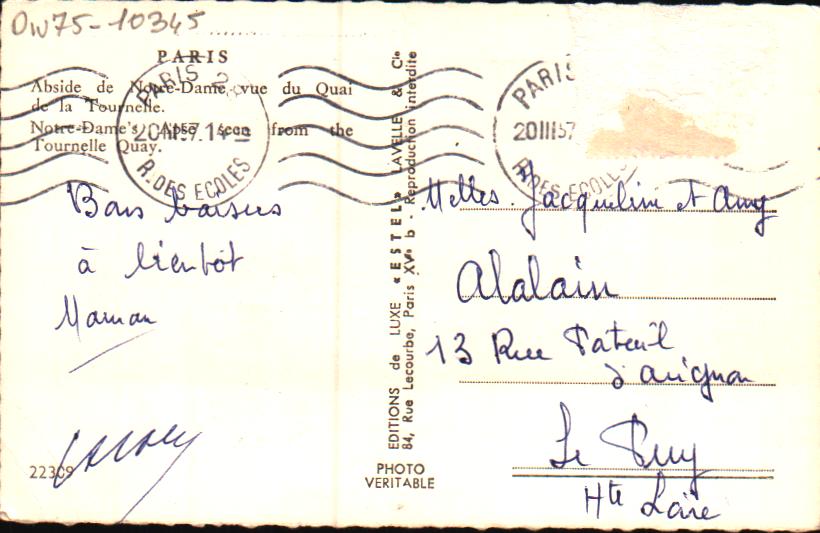 OW75-10345
PARIS
Abside de Notre-Dame, vue du Quai
de la Tournelle.
Notre-Dame's Apse seen from the
Tournelle Quay.
PARIS 2
20 III 57. 1
R. DES ECOLES
Bons baisers
à bientôt
Maman
22309
EDITIONS de LUXE « ESTEL » LAVELLE & Cie
84, Rue Lecourbe, Paris XVe b - Reproduction interdite
PHOTO
VERITABLE
PARIS
20 III 57
R. DES ECOLES
Melles. Jacqueline et Any
Alalain
13 Rue
d'avignon
Le Puy
Hte Loire